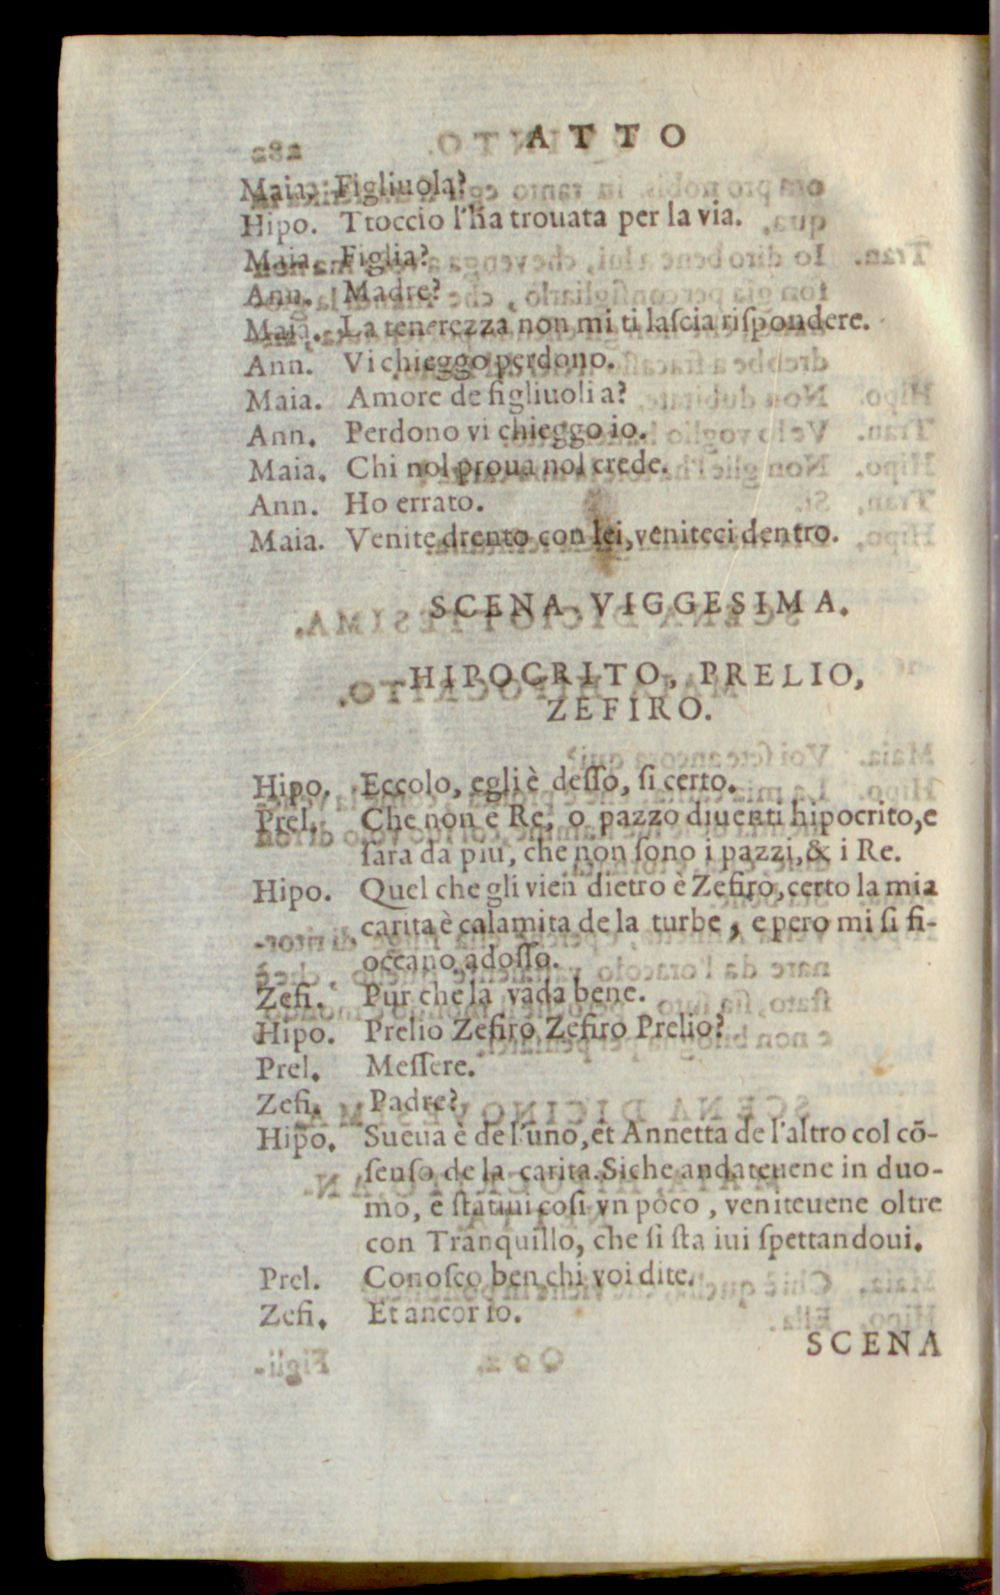 ATTO
Maia. Figliuola?
Hipo. Ttoccio l'ha trouata per la via.
Maia. Figlia?
Ann. Madre?
Maia. La tenerezza non mi ti lascia rispondere.
Ann. Vi chieggo perdono.
Maia. Amore de figliuoli a?
Ann. Perdono vi chieggo io.
Maia. Chi nol proua nol crede.
Ann. Ho errato.
Maia. Venite drento con lei, veniteci dentro.
SCENA VIGGESIMA.
HIPOCRITO, PRELIO,
ZEFIRO.
Hipo. Eccolo, egli è desso, si certo.
Prel. Che non è Re, o pazzo diuenti hipocrito, e
sara da piu, che non sono i pazzi, & i Re.
Hipo. Quel che gli vien dietro è Zefiro, certo la mia
carita è calamita de la turbe, e pero mi si fi-
occano adosso.
Zefi. Pur che la vada bene.
Hipo. Prelio Zefiro, Zefiro Prelio?
Prel. Messere.
Zefi. Padre?
Hipo. Sueua è de l'uno, et Annetta de l'altro col cō-
senso de la carita. Siche andateuene in duo-
mo, e statiui cosi vn poco, veniteuene oltre
con Tranquillo, che si sta iui spettandoui.
Prel. Conosco ben chi voi dite.
Zefi. Et ancor io.
SCENA